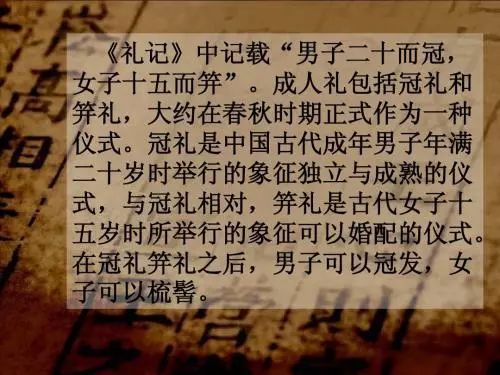 《礼记》中记载“男子二十而冠，
女子十五而笄”。成人礼包括冠礼和
笄礼，大约在春秋时期正式作为一种
仪式。冠礼是中国古代成年男子年满
二十岁时举行的象征独立与成熟的仪
式，与冠礼相对，笄礼是古代女子十
五岁时所举行的象征可以婚配的仪式。
在冠礼笄礼之后，男子可以冠发，女
子可以梳髻。
高
相
营
則